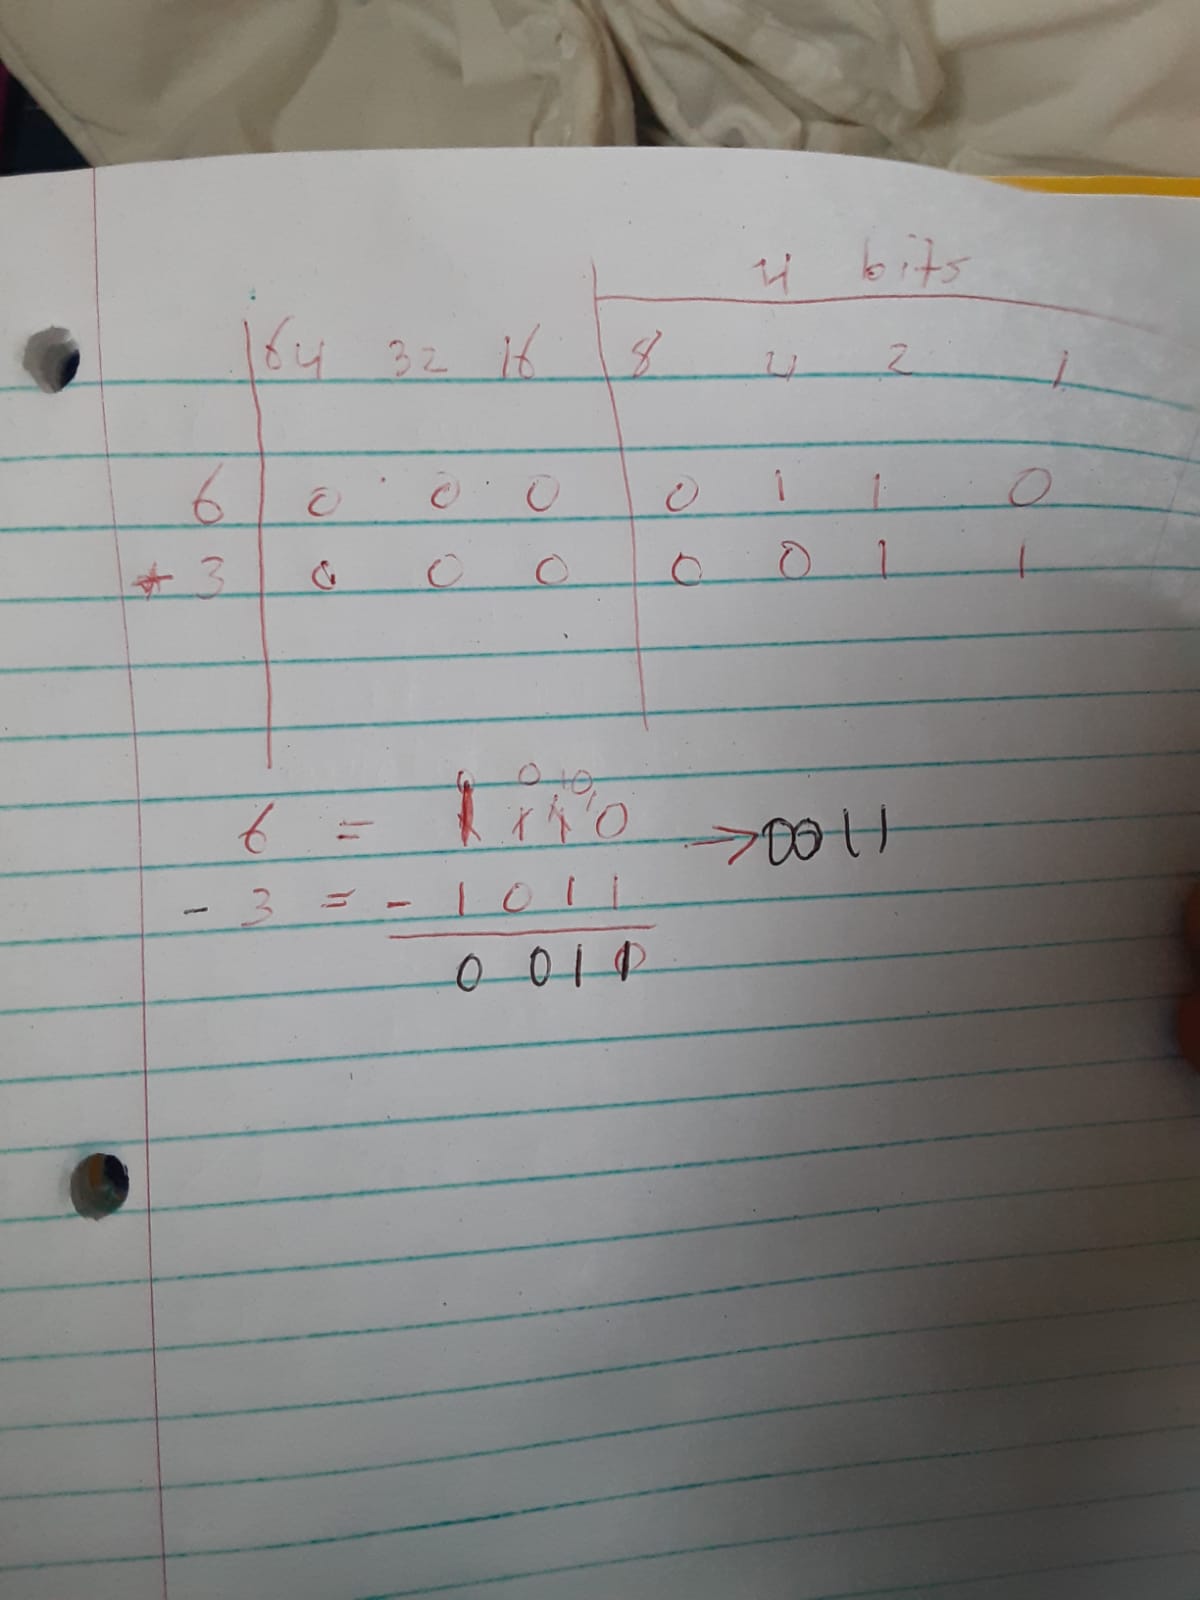 4 bits
64 32 16 8 4 2 1
6 0 0 0 0 1 1 0
* 3 0 0 0 0 0 1 1
0 10
6 = 1 1 1 0 → 0011
- 3 = - 1 0 1 1
0 0 1